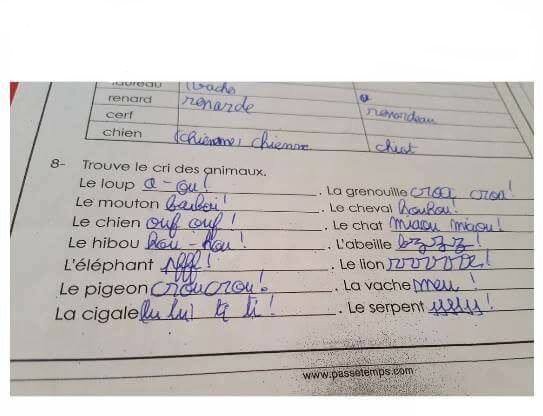 taureau (vache
renard renarde renardeau
cerf
chien (chienne) chienne chiot
8- Trouve le cri des animaux.
Le loup a-ou! . La grenouille croa croa!
Le mouton . Le cheval houhou!
Le chien ouf ouf! . Le chat miaou miaou!
Le hibou hou-hou! . L'abeille bzzzz!
L'éléphant pfff! . Le lion
Le pigeon croucrou! . La vache meu!
La cigale . Le serpent
www.passetemps.com